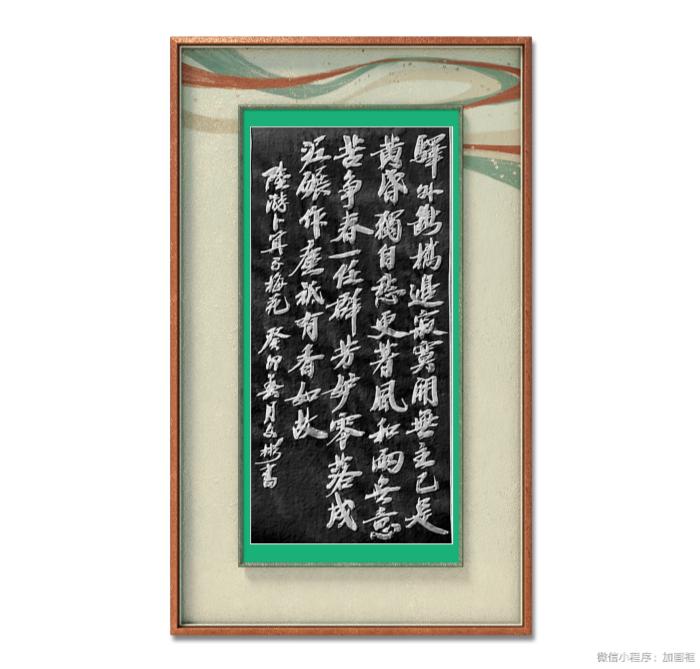 驛外斷橋邊寂寞開無主已是
黄昏獨自愁更著風和雨無意
苦争春一任群芳妒零落成
泥碾作塵祇有香如故
陸游卜算子梅花 癸卯月文彬書
微信小程序：加画框